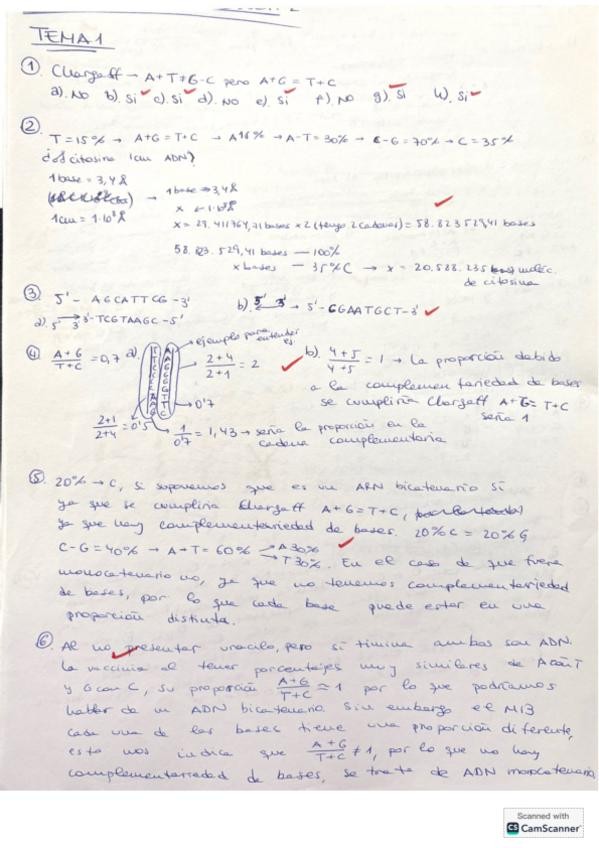 TEMA 1
① Chargaff → A+T ≠ G-C pero A+G = T+C
a). NO b). Si c). Si d). NO e). Si f). NO g). Si h). Si
② T=15% → A+G=T+C → A15% → A-T=30% → C-G=70% → C=35%
citosina 1cm ADN?
1 base = 3,4 Å
1cm = 1·10⁸ Å
→ 1 base → 3,4Å
x ← 1·10⁸
x = 29.411764,71 bases x 2 (tengo 2 cadenas) = 58.823529,41 bases
58.823.529,41 bases — 100%
x bases — 35% C → x = 20.588.235 moléc.
de citosina
③ 5' - AGCATTCG - 3'
a). 5' → 3' 3'-TCGTAAGC-5'
b). 5' 3' → 5'-CGAATGCT-3'
④ A+G / T+C = 0,7 a).
ejemplo para entender
2+4 / 2+1 = 2
0'7
2+1 / 2+4 = 0'5
1 / 0'7 = 1,43 → seria la proporción en la
cadena complementaria
b). 4+5 / 4+5 = 1 → La proporción debido
a la complementariedad de bases
se cumpliria Chargaff A+G = T+C
seria 1
⑤ 20% → C, si suponemos que es un ADN bicatenario si
ya que se cumpliria Chargaff A+G = T+C,
ya que hay complementariedad de bases. 20% C = 20% G
C-G = 40% → A+T = 60% A 30% T 30%. En el caso de que fuera
monocatenario no, ya que no tenemos complementariedad
de bases, por lo que cada base puede estar en una
proporción distinta.
⑥ Al no presentar uracilo, pero si timina ambas son ADN.
La vaccinia al tener porcentajes muy similares de A con T
y G con C, su proporción A+G / T+C ≈ 1 por lo que podriamos
hablar de un ADN bicatenario. Sin embargo el M13
cada una de las bases tiene una proporción diferente,
esto nos indica que A+G / T+C ≠ 1, por lo que no hay
complementariedad de bases, se trata de ADN monocatenario.
Scanned with
CS CamScanner